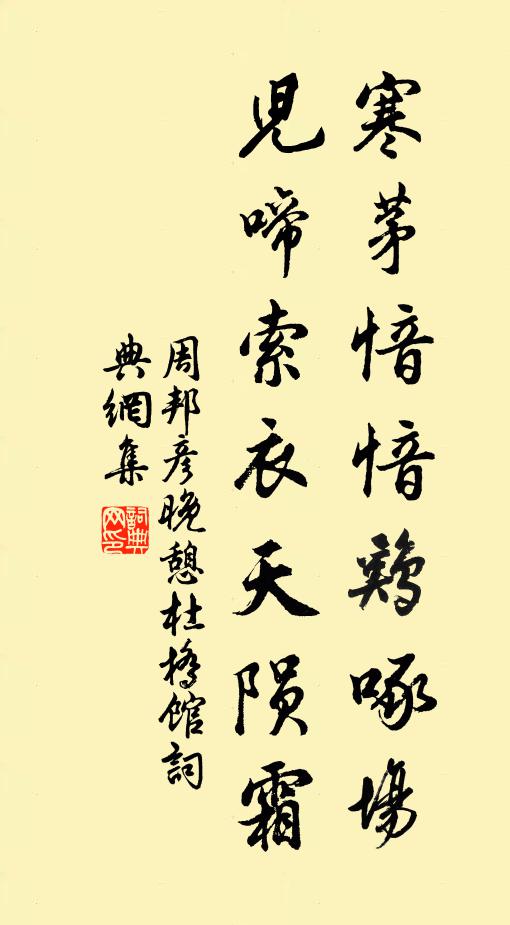 寒茅愔愔鷄啄場
兒啼索衣天陨霜
周邦彦晚憩杜橋館詞
典網集
詞典
网印